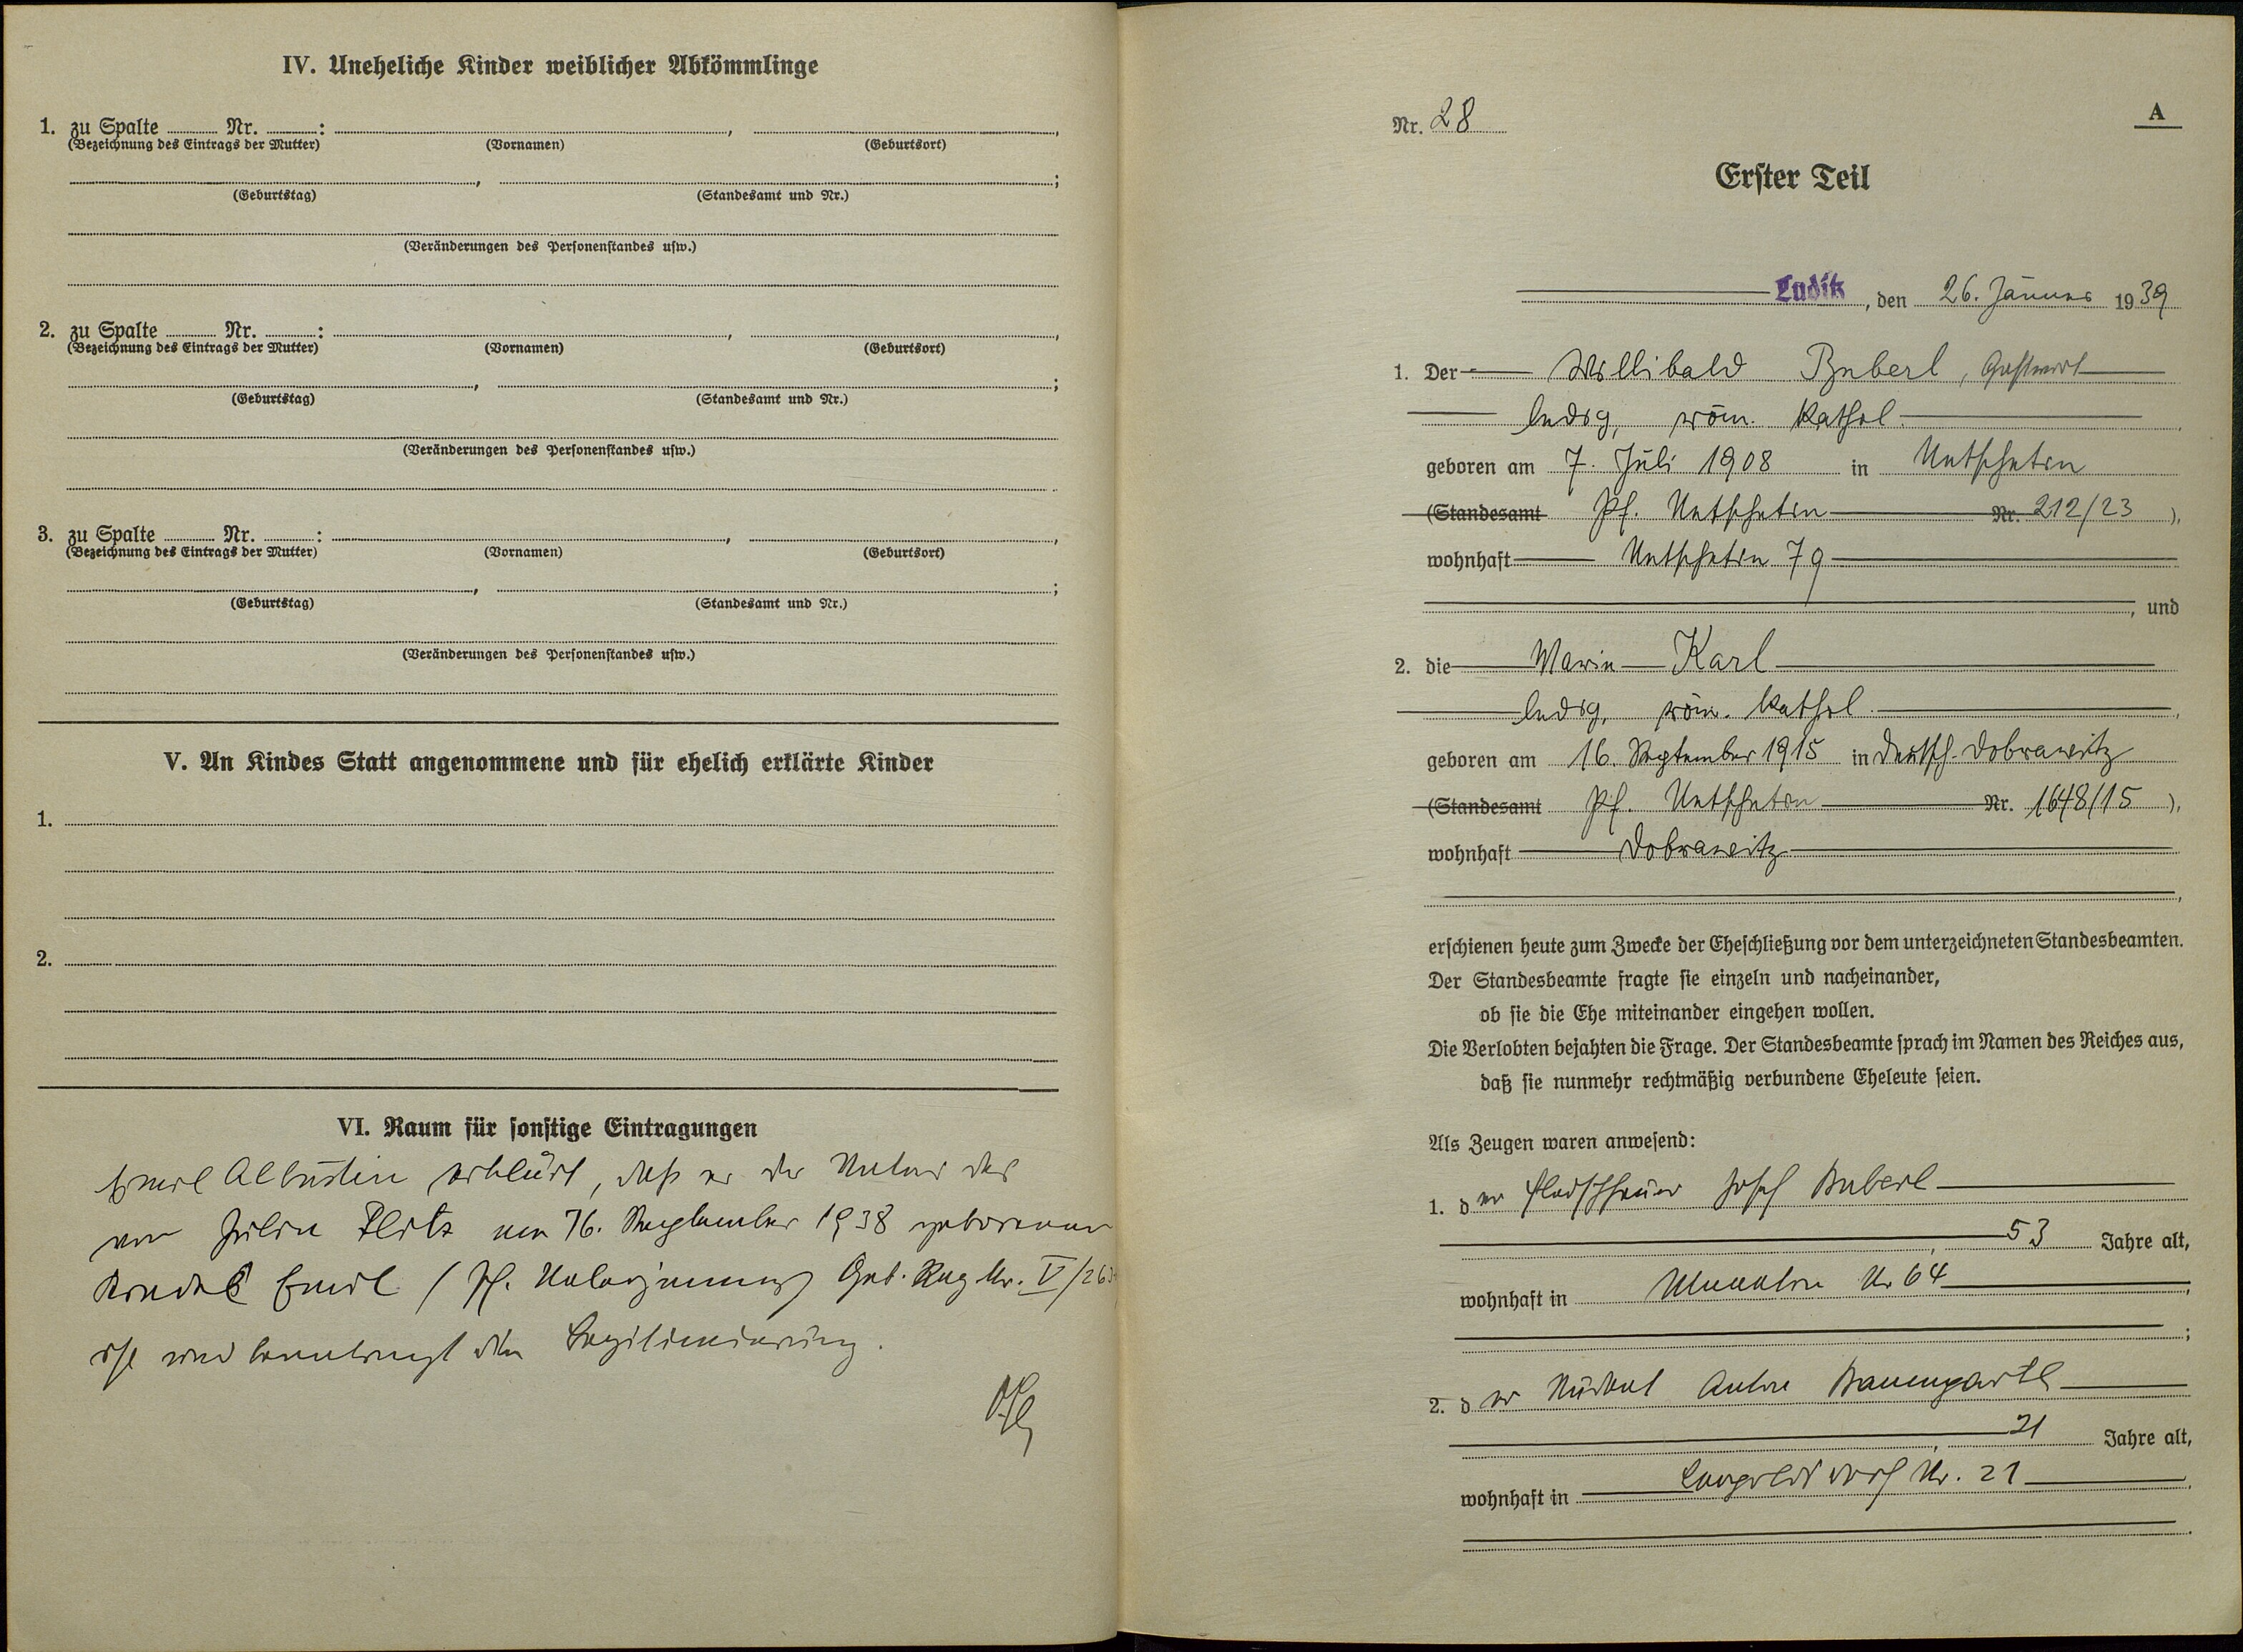 IV. Uneheliche Kinder weiblicher Abkömmlinge
1. zu Spalte Nr. : , ,
(Bezeichnung des Eintrags der Mutter) (Vornamen) (Geburtsort)
, ;
(Geburtstag) (Standesamt und Nr.)
(Veränderungen des Personenstandes usw.)
2. zu Spalte Nr. : , ,
(Bezeichnung des Eintrags der Mutter) (Vornamen) (Geburtsort)
, ;
(Geburtstag) (Standesamt und Nr.)
(Veränderungen des Personenstandes usw.)
3. zu Spalte Nr. : , ,
(Bezeichnung des Eintrags der Mutter) (Vornamen) (Geburtsort)
, ;
(Geburtstag) (Standesamt und Nr.)
(Veränderungen des Personenstandes usw.)
V. An Kindes Statt angenommene und für ehelich erklärte Kinder
1.
2.
VI. Raum für sonstige Eintragungen
Emil erklärt, daß er der Vater des
von Julia am 16. September 1938 geborenen
Kindes Emil (Pf. Geb. Reg Nr. V/263
ist und beantragt die Legitimierung.
Nr. 28
A
Erster Teil
Luditz, den 26. Jänner 1939
1. Der Willibald Buberl, Gastwirt
ledig, röm. kathol.
geboren am 7. Juli 1908 in Netschetin
(Standesamt Pf. Netschetin Nr. 212/23 ),
wohnhaft Netschetin 79
, und
2. die Maria Karl
ledig, röm. kathol.
geboren am 16. September 1915 in Deutsch-Dobrawitz
(Standesamt Pf. Netschetin Nr. 1648/15 ),
wohnhaft Dobrawitz
erschienen heute zum Zwecke der Eheschließung vor dem unterzeichneten Standesbeamten.
Der Standesbeamte fragte sie einzeln und nacheinander,
ob sie die Ehe miteinander eingehen wollen.
Die Verlobten bejahten die Frage. Der Standesbeamte sprach im Namen des Reiches aus,
daß sie nunmehr rechtmäßig verbundene Eheleute seien.
Als Zeugen waren anwesend:
1. der Fleischhauer Josef Buberl
53 Jahre alt,
wohnhaft in Nr 64
;
2. der Anton Baumgartl
21 Jahre alt,
wohnhaft in Nr. 21